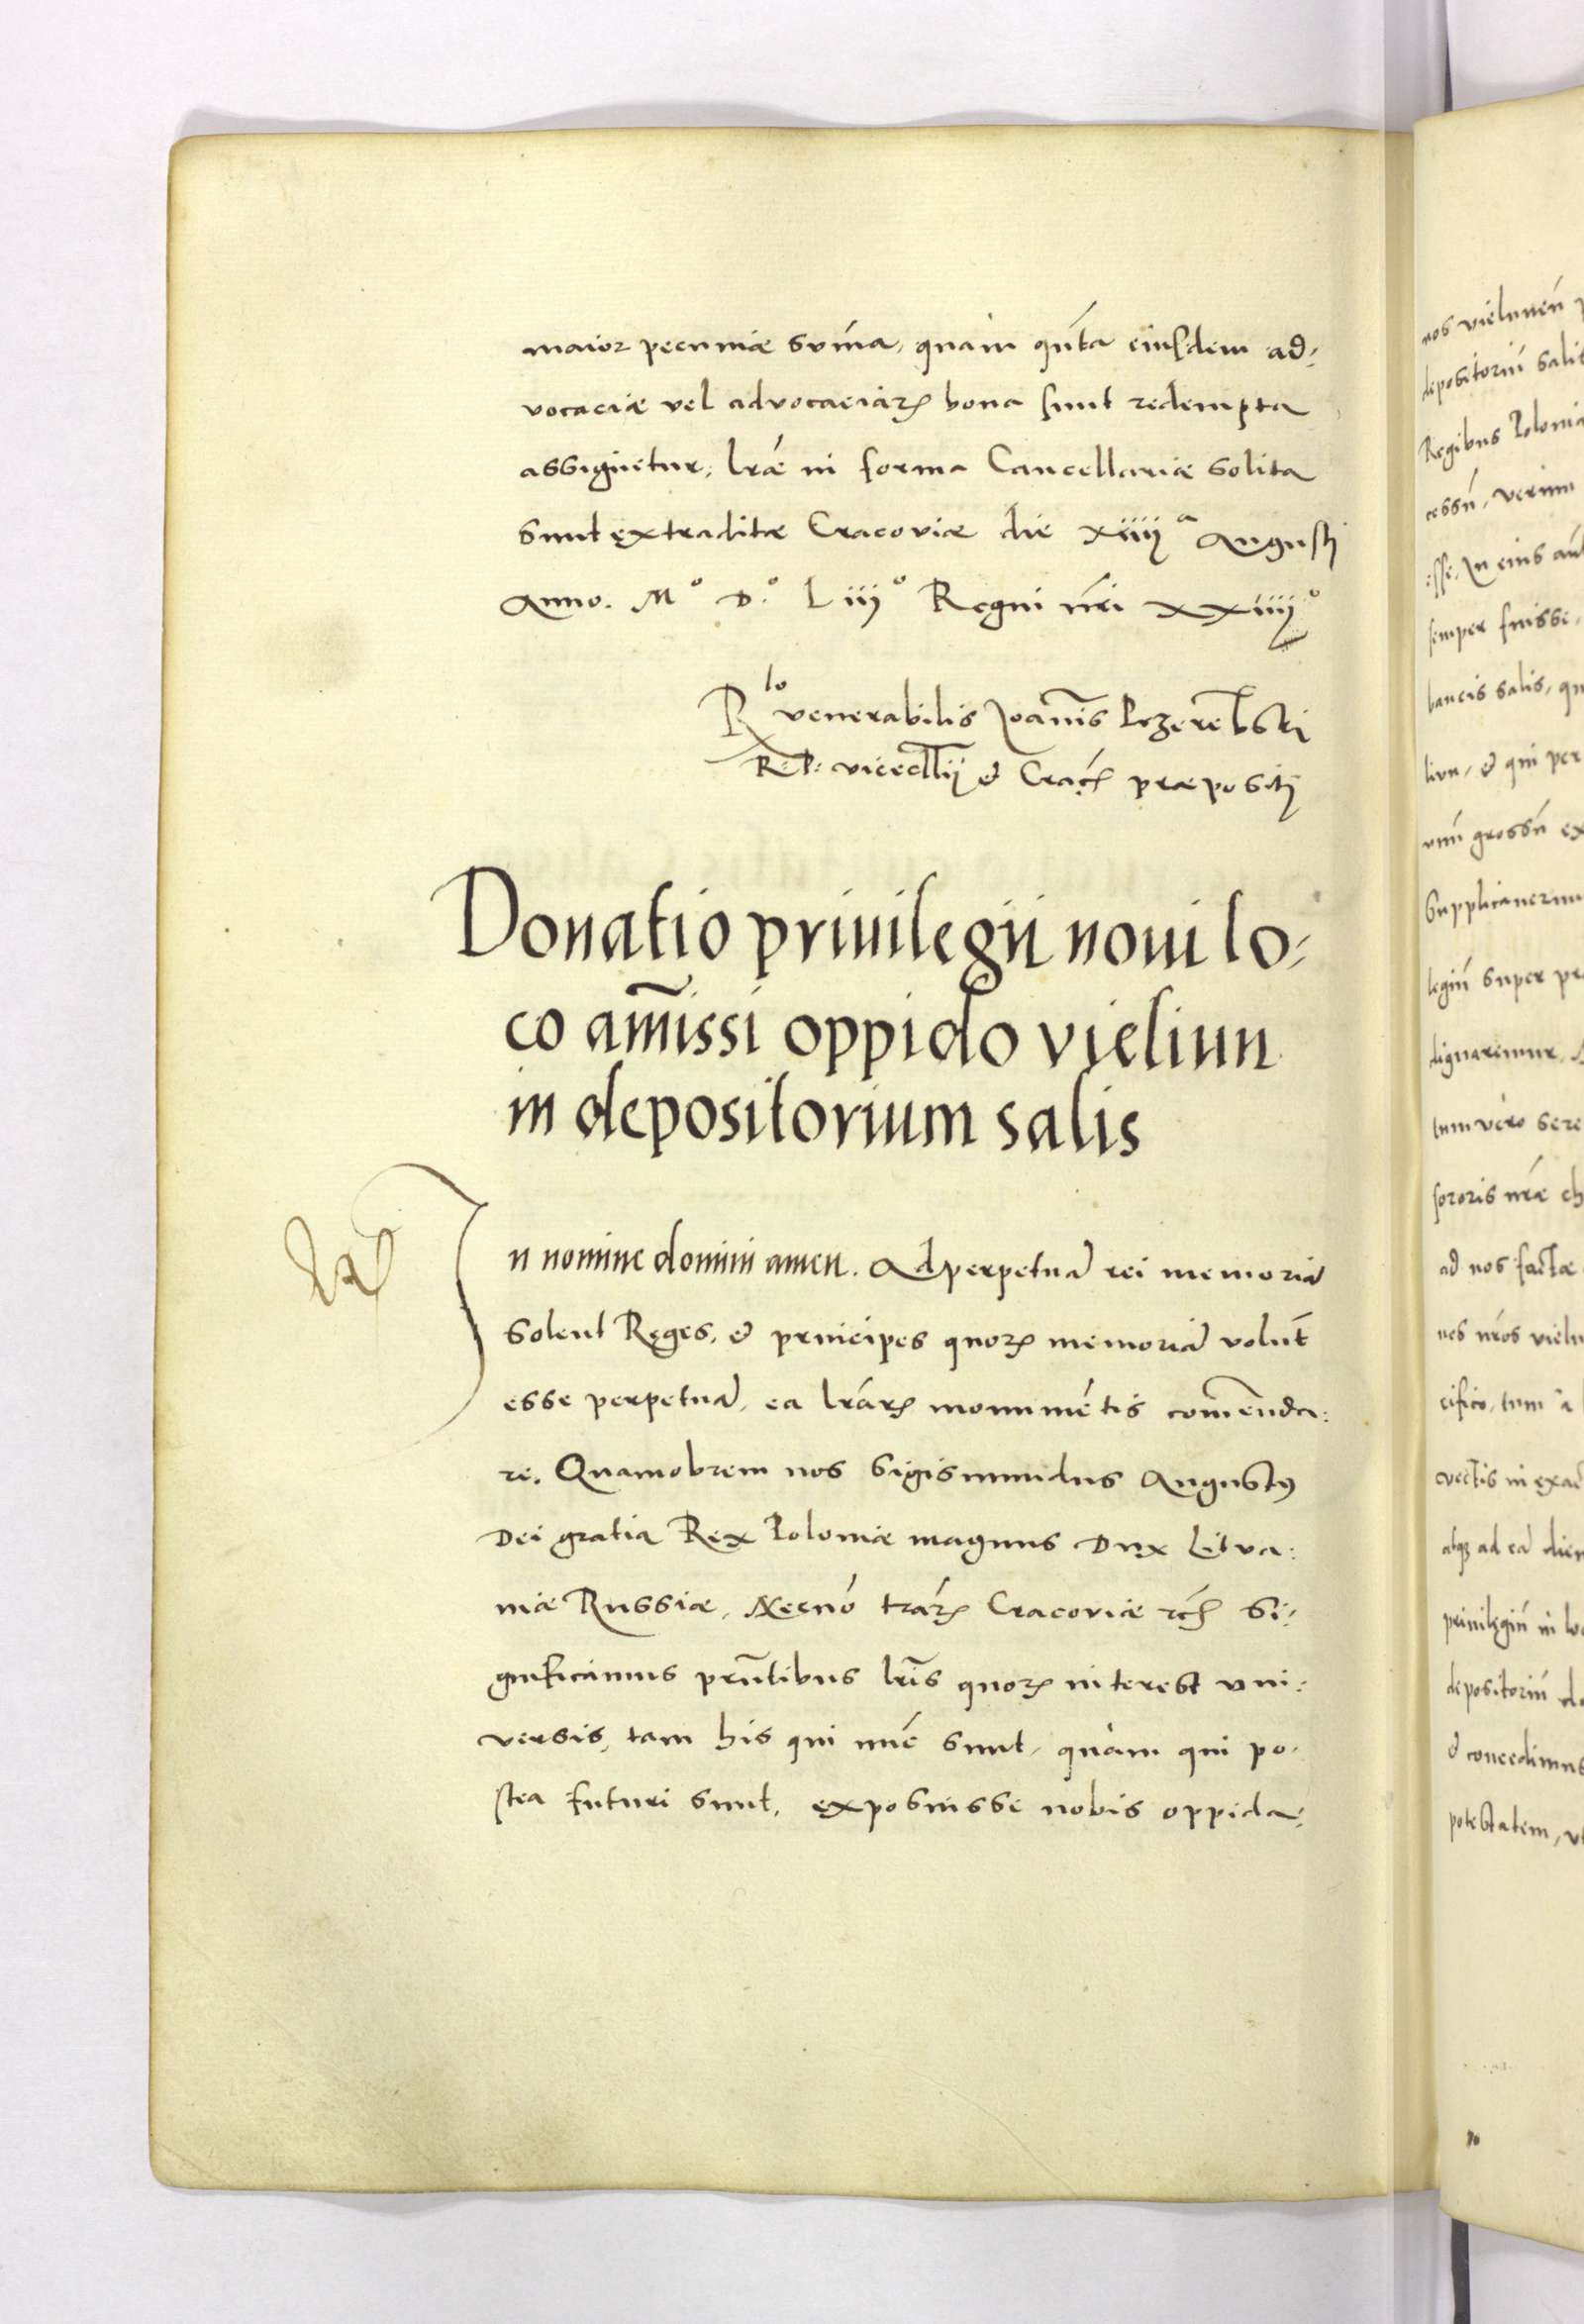 maior pecuniæ sum̃a, quàm qñta eiusdem ad-
vocaciæ vel advocaciarꝝ bona sunt redempta
assignetur, lr̃æ in forma Cancellariæ solita
sunt extraditæ Cracoviæ die xiiij a Augusti
Anno. M o D. o L iij o Regni nr̃i xxiiij o
R lo venerabilis Joan̄is Przerembski
R. P. vicecllij & Crac̃ præpositi
Donatio priuilegii noui lo-
co am̄issi oppido vieliun
in depositorium salis
In nomine domini amen. Ad perpetuã rei memoriã
Solent Reges, & principes quorꝝ memoriã volũt
esse perpetuã, ea lr̃arꝝ monumẽtis com̃enda:
re. Quamobrem nos Sigismundus Augustꝯ
Dei gratia Rex Poloniæ magnus Dux Litva:
niæ Russiæ, Necnõ tr̃arꝝ Cracoviæ rc̃ Si-
gnificamus pr̃ntibus lr̃is quorꝝ interest vni:
versis, tam his qui nũc sunt, quàm qui po-
stea futuri sunt, exposuisse nobis oppida-
nos vielunen̄
depositoriũ
Regibus Polonia
cessũ, verum
esse. In eius
semper fuisse,
bancis salis,
& qui per
vnũ grossũ
Supplicauerun
legiũ super
dignaremur,
tum vèro
sororis nr̃æ
ad nos factæ
nos nr̃os
cifico, tum
vectis in
atqꝫ ad eã
priuilegiũ in
depositoriũ
& concedimus
potestatem,